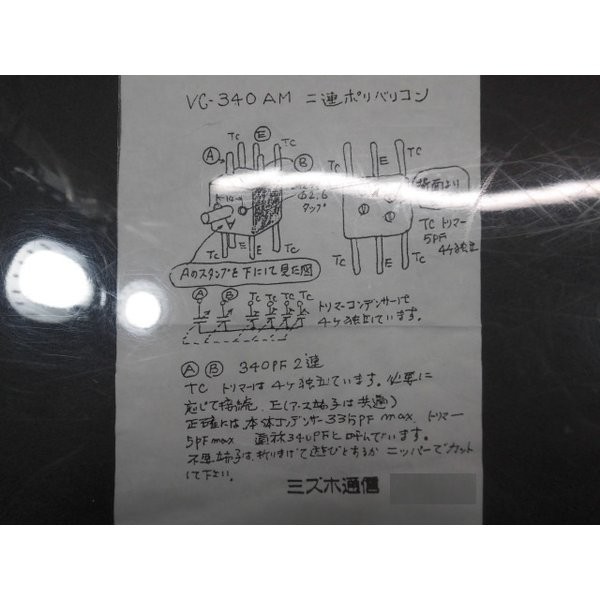 VC-340AM 二連ポリバリコン
TC E TC
A B
TC E TC
φ2.6
タップ
背面より
TC トリマー
5PF
4ケ独立
TC E TC
TC E TC
Aのスタンプを下にして見た図
A B TC TC TC TC
トリマーコンデンサーは
4ヶ独立しています。
A B 340PF 2連
TC トリマーは4ヶ独立ています。必要に
応じて接続 E(アース端子は共通)
正確には、本体コンデンサー335PF max、トリマー
5PF max 通称340PFと呼んでいます。
不要端子は、折りまげて遊びとするか ニッパーでカット
して下さい。
ミズホ通信